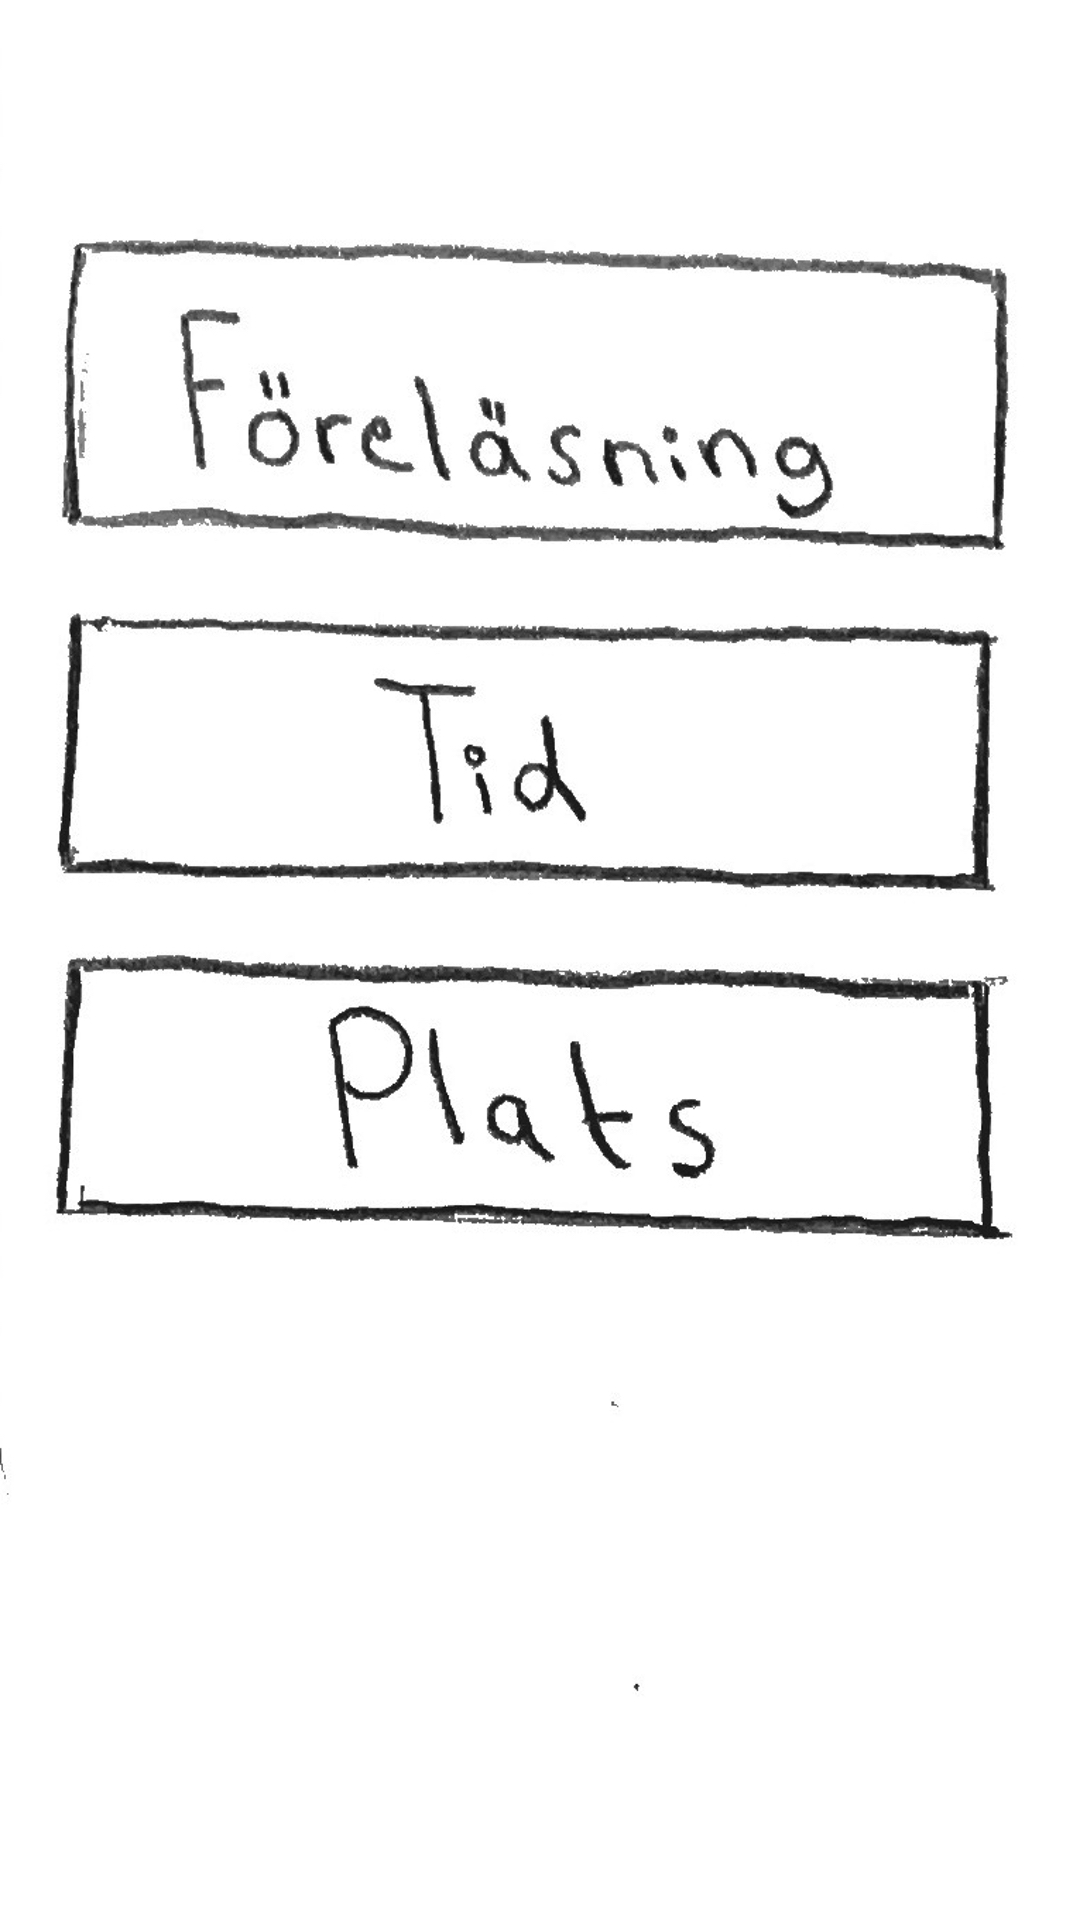 Föreläsning
Tid
Plats